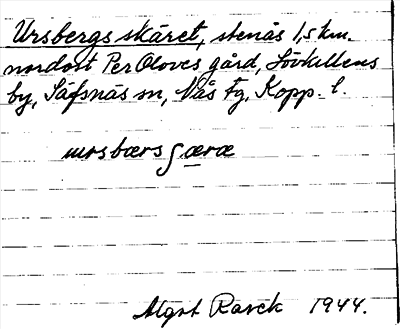 Ursbergs skäret, stenås 1,5 km.
nordost Per Oloves gård, Lövkullens
by, Säfsnäs sn, Nås tg, Kopp. l.
Margt Rarck 1944.